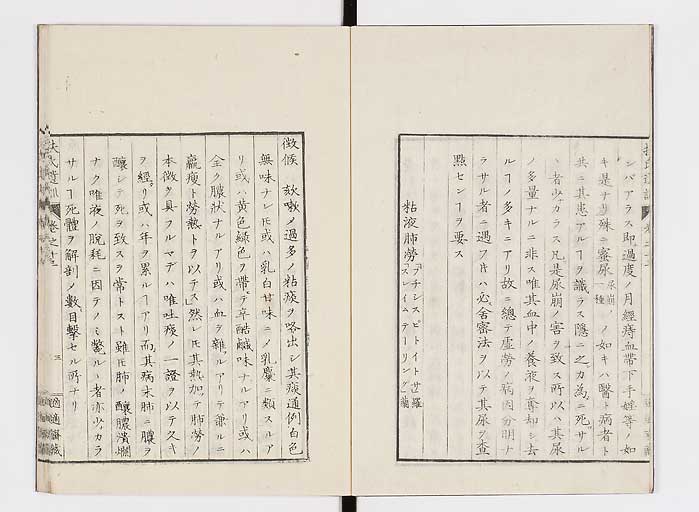 シバアラス即過度ノ月經痔血帶下手婬等ノ如
キ是ナリ殊ニ蜜尿尿崩ノ一種ノ如キハ醫ト病者ト
共ニ其患アルヿヲ識ラス隱ニ之カ為ニ死サル
ヽ者少カラス凡是尿崩ノ害ヲ致ス所以ハ其尿
ノ多量ナルニ非ス唯其血中ノ養液ヲ奪却シ去
ルヿノ多キニアリ故ニ總テ虛勞ノ病因分明ナ
ラサル者ニ遇フ片ハ必舍密法ヲ以テ其尿ヲ査
㸃センヿヲ要ス
粘液肺勞「プチシスピトイト」世羅「スレイムテーリング」蘭
徴候 欬嗽シ過多ノ粘痰ヲ咯出シ其痰通例白色
無味ナレ圧或ハ乳白甘味ニノ乳麋ニ類スルア
リ或ハ黄色綠色ヲ帶テ辛酷鹹味ナルアリ或ハ
全ク膿狀ナルアリ或ハ血ヲ雜ルアリテ謙ルニ
羸瘦ト勞熱トヲ以テス然レ圧其熱加テ肺勞ノ
本徴ヲ具フルマデハ唯吐痰ノ一證ヲ以テ久キ
ヲ經リ或ハ年ヲ累ルヿアリ而其病末肺ニ膿ヲ
釀シテ死ヲ致スヲ常トスト雖圧肺ノ釀膿潰爛
ナク唯液ノ脫耗ニ因テノミ斃ル者亦少カラ
サルヿ死體ヲ解剖ノ數目擊セル所ナリ
扶氏遺訓 卷之十三
三